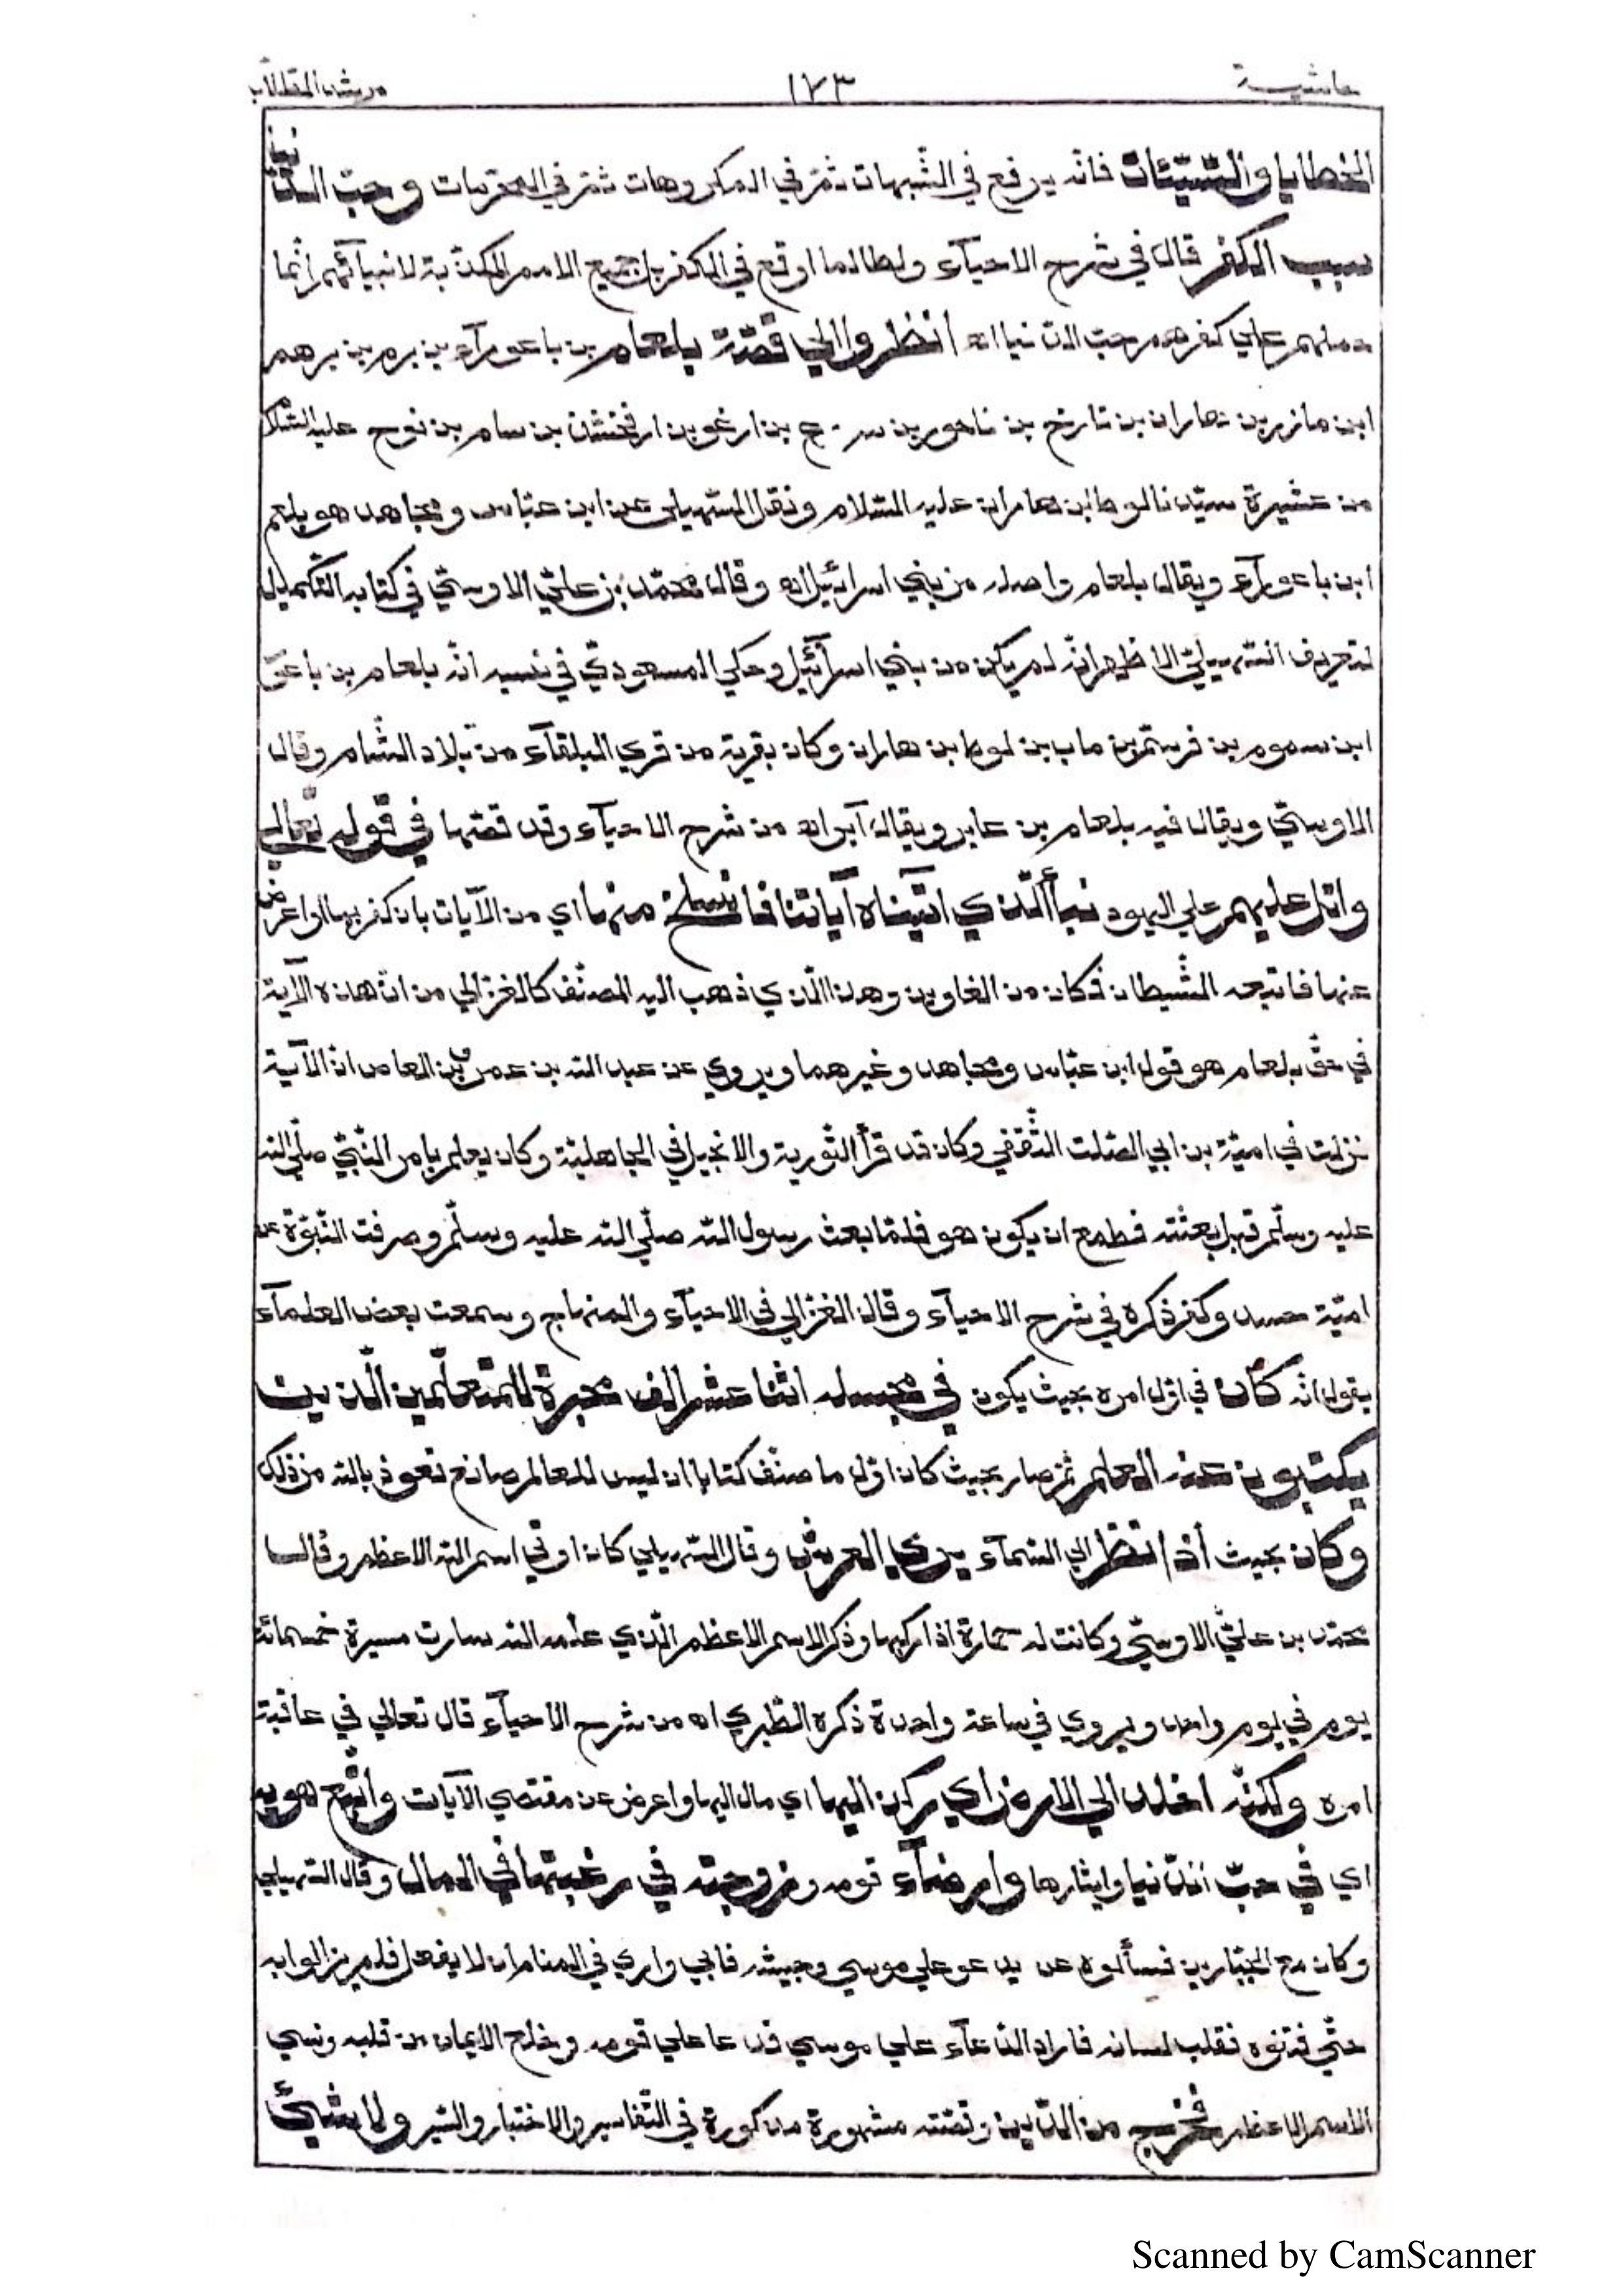 حاشية ١٧٣ مرشد الطلاب
الخطايا والسّيّئات فانّه يوقع في الشّبهات ثمّ في المكروهات ثمّ في المحرّمات وحبّ الدّنيا
سبب الكفر قال في شرح الاحيآء ولطالما اوقع في الكفر بل جميع الامم المكذّبة لانبيآئهم انّما
حملهم علي كفرهم حبّ الدّنيا اه انظروا الي قصّة بلعام بن باعورآء بن برم بن برهم
ابن مازر بن هاران بن تارخ بن ناحور بن سر.ج بن ارغو بن ارفخشذ بن سام بن نوح عليه السّلام
من عشيرة سيّدنا لوط ابن هاران عليه السّلام ونقل السّهيلي عن ابن عبّاس ومجاهد هو بلعم
ابن باعورآء ويقال بلعام واصله من بني اسرائيل اه وقال محمّد بن عليّ الاوسيّ في كتابه التّكميل
لتعريف السّهيليّ الاظهر انّه لم يكن من بني اسرآئيل وحكي المسعوديّ في نسبه انّه بلعام بن باعور
ابن سموم بن فرستم بن ماب بن لوط بن هاران وكان بقرية من قري البلقآء من بلاد الشّام وقال
الاوسيّ ويقال فيه بلعام بن عابر ويقال آبر اه من شرح الاحيآء وقد قصّها في قوله تعالي
واتل عليهم علي اليهود نبأ الّذي اتيناه آياتنا فانسلخ منها اي من الآيات بان كفر بها او اعرض
عنها فاتبعه الشّيطان فكان من الغاوين وهذا الّذي ذهب اليه المصنّف كالغزالي من انّ هاذه الآية
في حقّ بلعام هو قول ابن عبّاس ومجاهد وغيرهما ويروي عن عبد الله بن عمرو بن العاص انّ الآية
نزلت في اميّة بن ابي الصّلت الثّقفي وكان قد قرأ التّورية والانجيل في الجاهليّة وكان يعلم بامر النّبيّ صلّي الله
عليه وسلّم قبل بعثته فطمع ان يكون هو فلمّا بعث رسول الله صلّي الله عليه وسلّم وصرفت النّبوّة عن
اميّة حسد وكفر ذكره في شرح الاحيآء وقال الغزالي في الاحيآء والمنهاج وسمعت بعض العلمآء
يقول انّه كان في اوّل امره بحيث يكون في مجلسه اثنا عشر الف محبرة للمتعلّمين الّذين
يكتبون عنه العلم ثمّ صار بحيث كان اوّل ما صنّف كتابا ان ليس للعالم صانع نعوذ بالله من ذلك
وكان بحيث أذا نظر الي السّمآء يري العرش وقال السّهيلي كان اوتي اسم الله الاعظم وقال
محمّد بن عليّ الاوسيّ وكانت له حمارة اذا ركبها وذكر الاسم الاعظم الّذي علّمه الله سارت مسيرة خمسمائة
يوم في يوم واحد ويروي في ساعة واحدة ذكره الطّبري اه من شرح الاحيآء قال تعالي في عاقبة
امره ولكنّه اخلد الي الارض اي ركن اليها اي مال اليها واعرض عن مقتضي الآيات واتّبع هويه
اي في حبّ الدّنيا وايثارها وارضآء قومه وزوجته في رغبتها في المال وقال السّهيلي
وكان مع الجبّارين فسألوه عن يدعو علي موسي وجيشه فابي واري في المنام ان لا يفعل فلم يزالوا به
حتّي فتنوه فقلب لسانه فاراد الدّعآء علي موسي فدعا علي قومه وخلع الايمان من قلبه ونسي
الاسم الاعظم فخرج من الدّين وقصّته مشهورة مذكورة في التّفاسير والاختبار والسّير ولا شيئ
Scanned by CamScanner